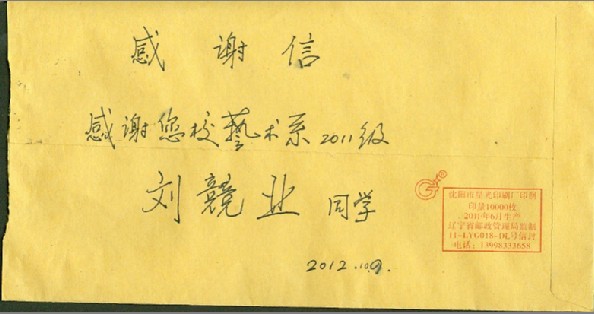 感谢信
感谢您校藝术系2011级
刘競业 同学
2012.10.9.
沈阳市星光印刷厂印制
印量10000枚
2011年6月生产
辽宁省邮政管理局监制